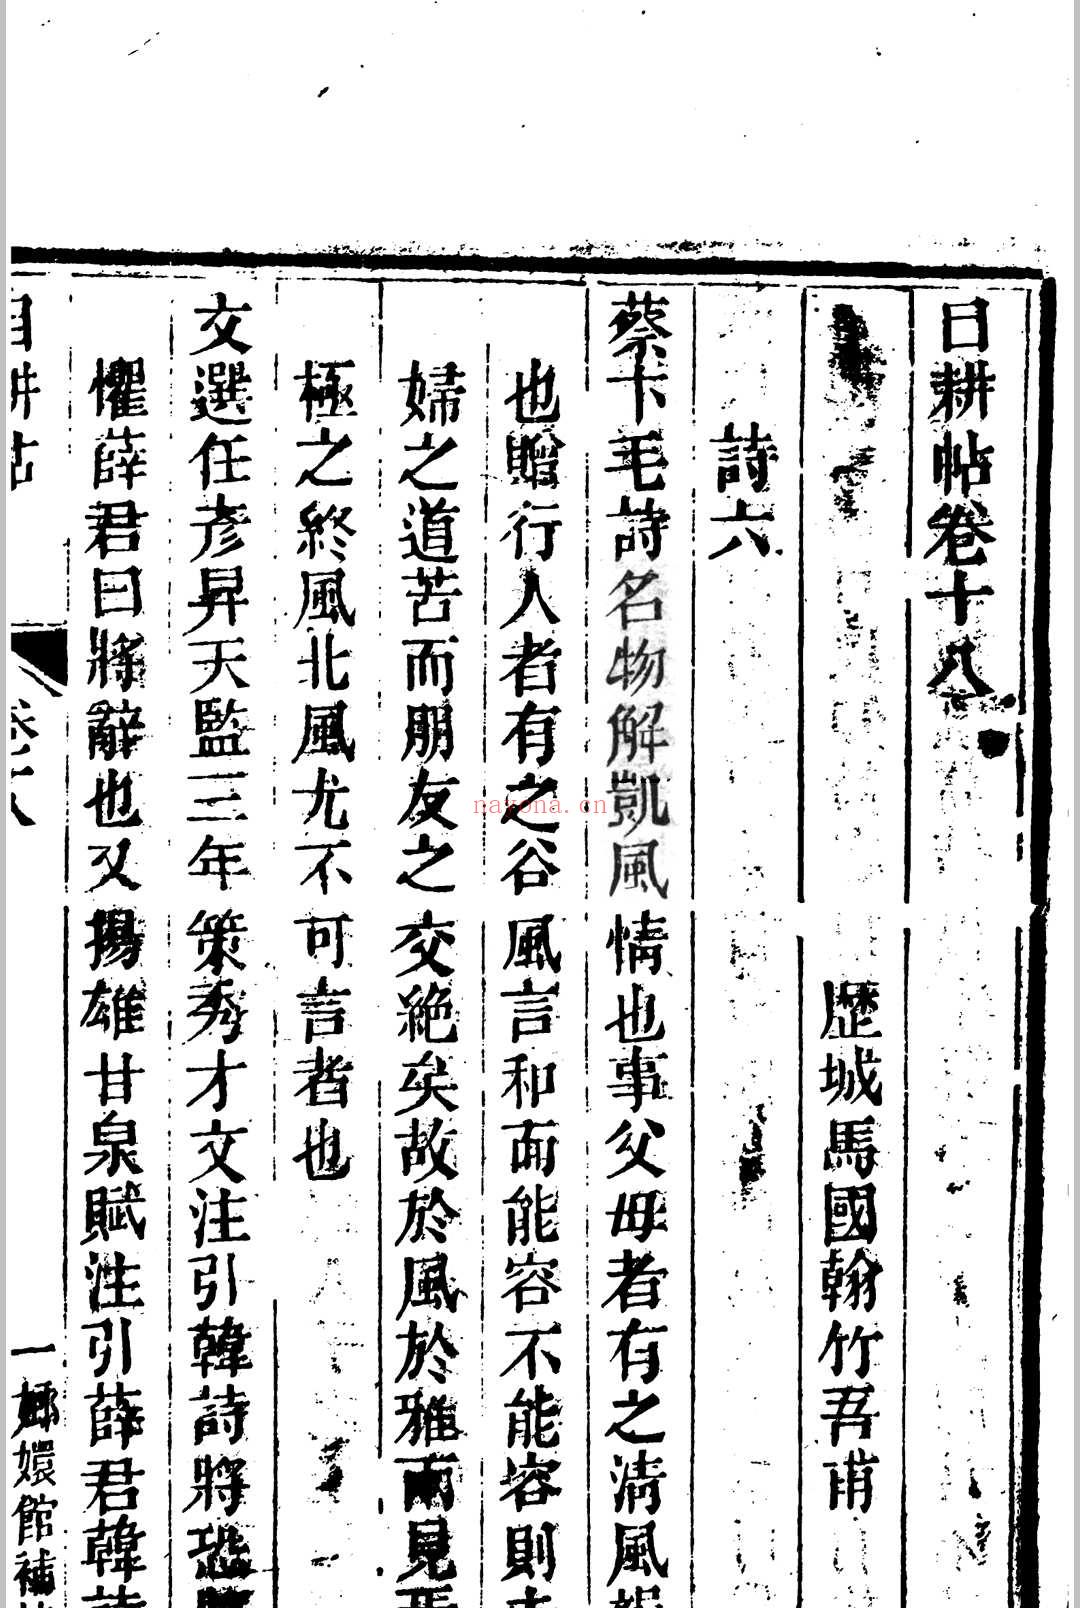 目耕帖卷十八
歷城馬國翰竹吾甫
詩六
蔡卞毛詩名物解凱風情也事父母者有之清風
也贈行人者有之谷風言和而能容不能容則
婦之道苦而朋友之交絕矣故於風於雅兩見焉
極之終風北風尤不可言者也
文選任彥昇天監三年策秀才文注引韓詩將恐
懼薛君曰將辭也又揚雄甘泉賦注引薛君韓詩
目耕帖
卷十八
一嫏嬛館補
nayona.cn